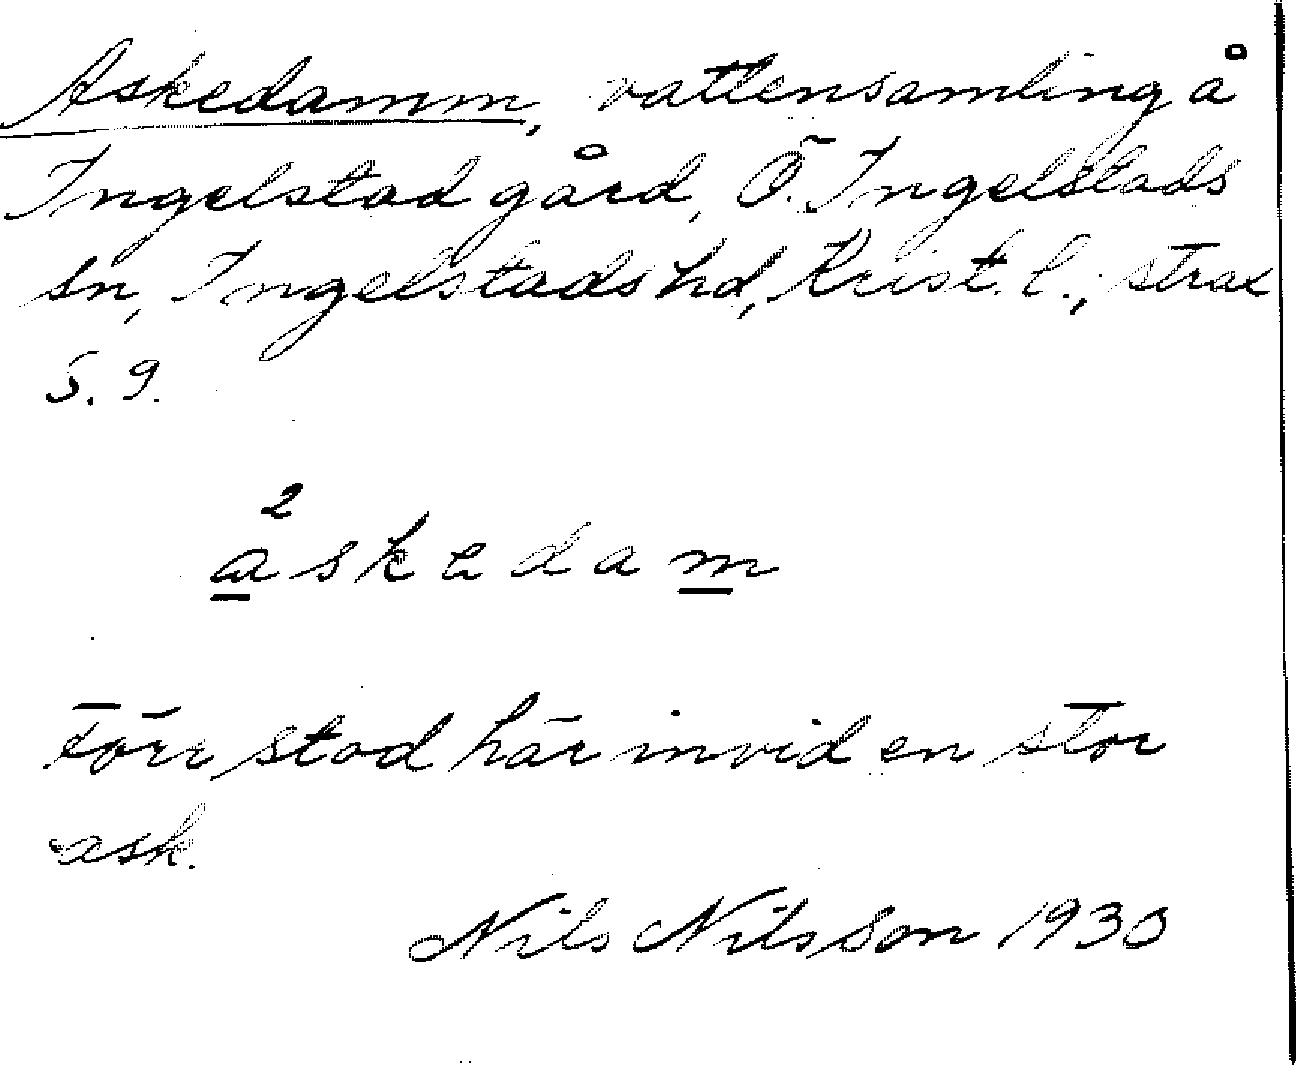 Askedamm, vattensamling å
Ingelstad gård, Ö. Ingelstads
sn, Ingelstads hd, Krist. l., strax
S. g.
2
askedam
Förr stod här invid en stor
ask.
Nils Nilsson 1930